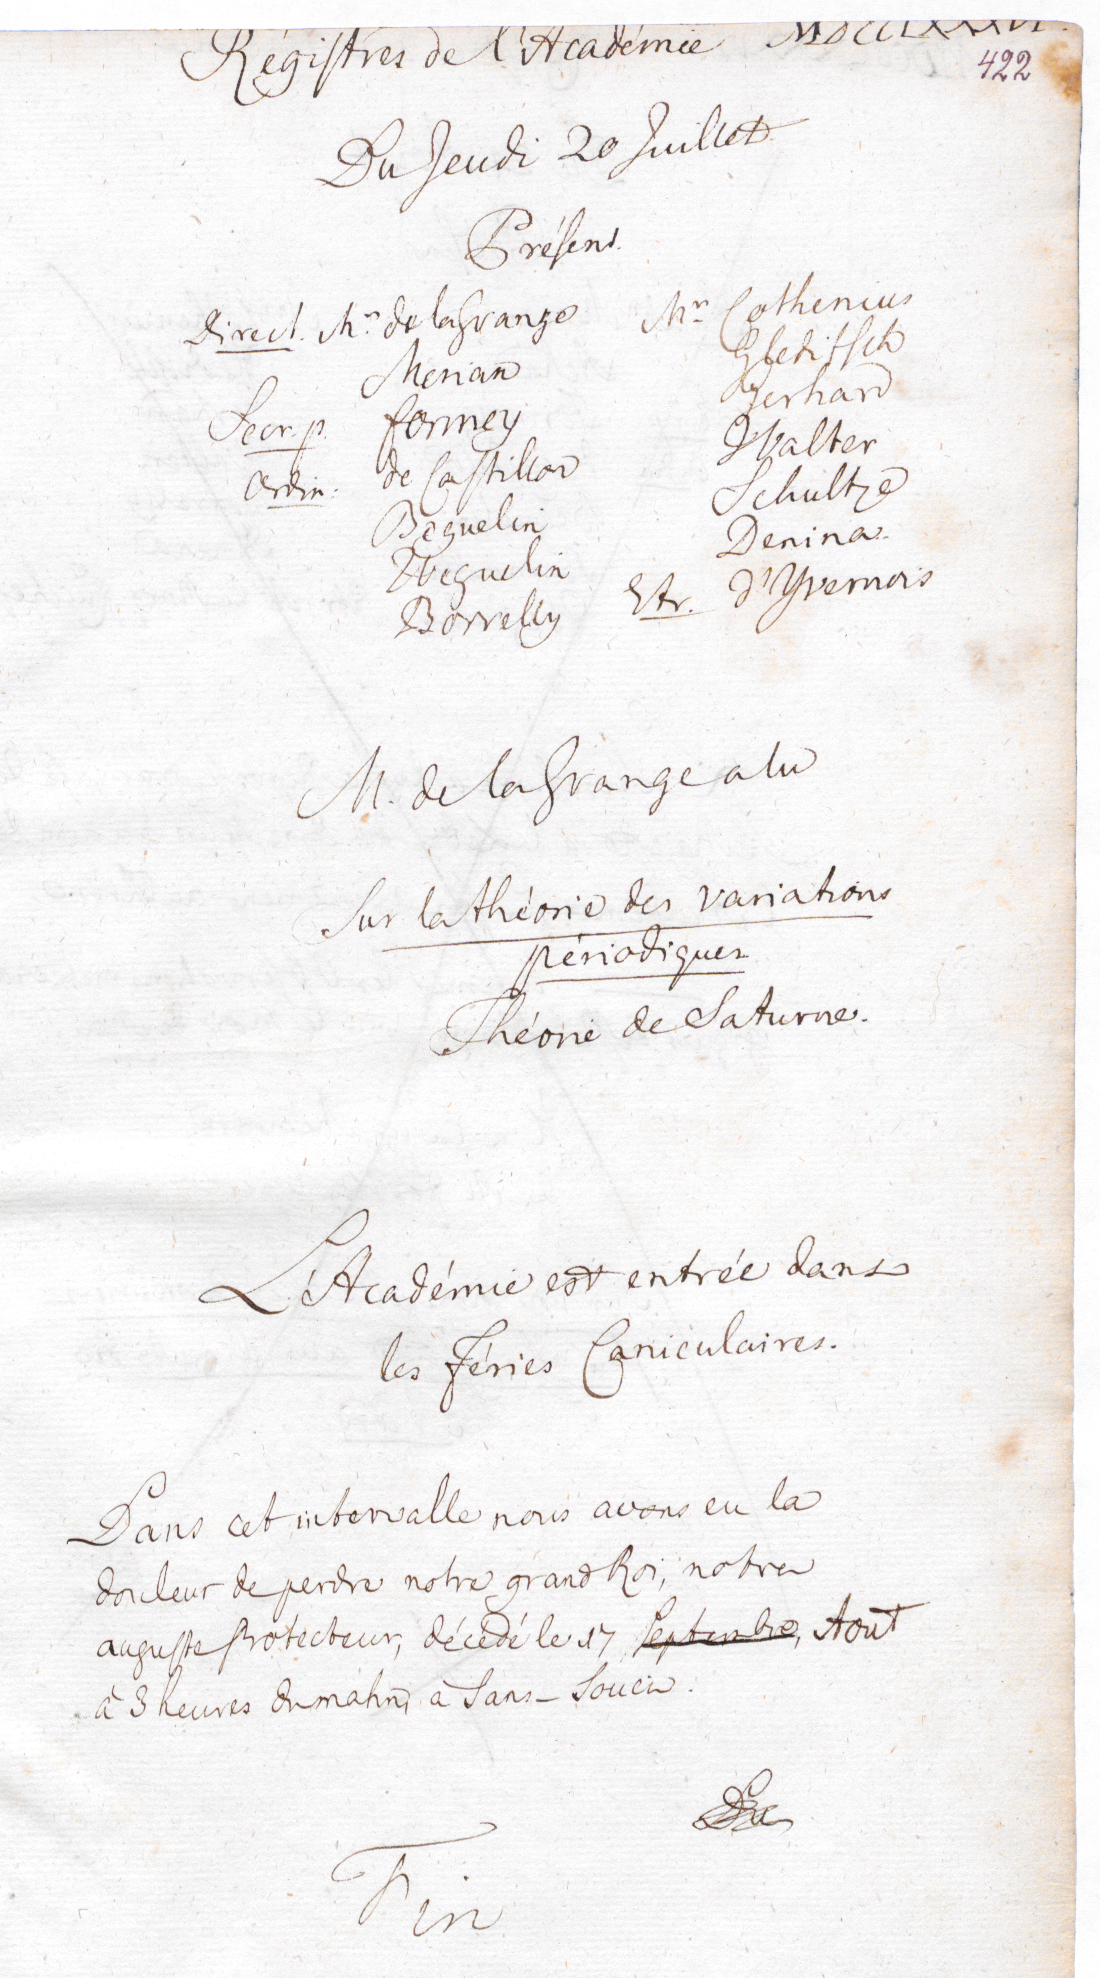 Régistres de l'Académie MDCCLXXXVI.
422
Du Jeudi 20 Juillet
Présens.
Direct. Mr. de la Grange
Merian
Secr. p. Formey
Ordin. de Castillon
Beguelin
Weguelin
Borrelly
Mr Cothenius
Gleditsch
Gerhard
Walter
Schultze
Denina.
Etr. d'Yvernois
M. de la Grange a lu
Sur la théorie des variations
périodiques
Théorie de Saturne.
L'Académie est entrée dans
les Féries Caniculaires.
Dans cet intervalle nous avons eu la
douleur de perdre notre grand Roi, notre
auguste Protecteur, décédé le 17 Septembre, Aout
à 3 heures du matin, à Sans-Souci.
Fin